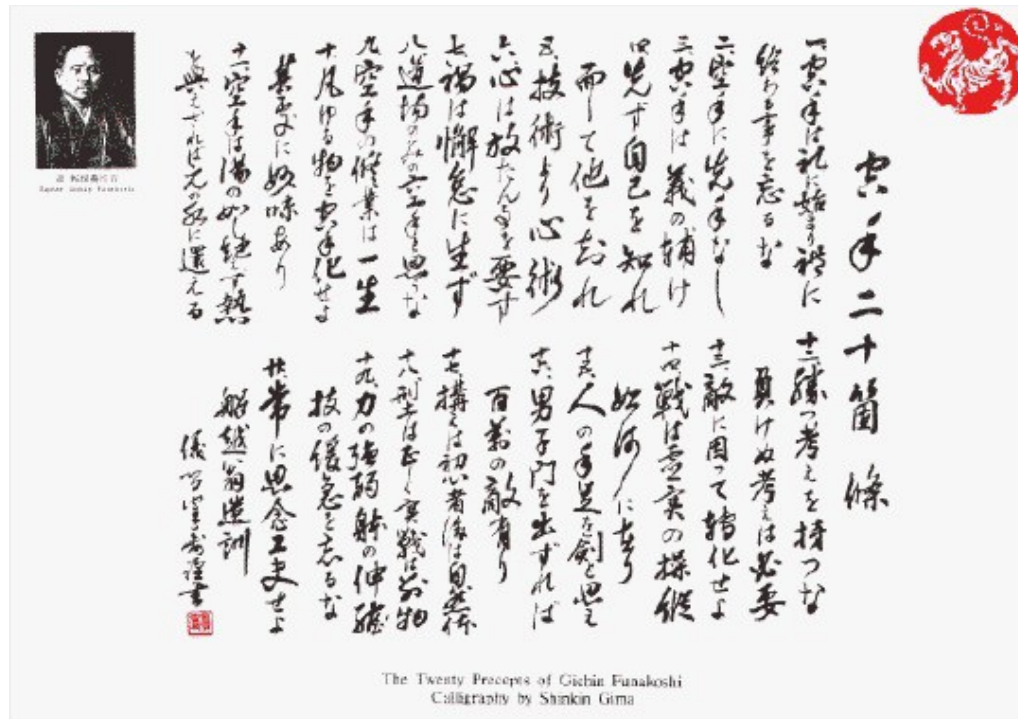 空手二十箇條
一、空手は礼に始まり禮に
終わる事を忘るな
二、空手に先手なし
三、空手は義の輔け
四、先ず自己を知れ
而して他を知れ
五、技術より心術
六、心は放たん事を要す
七、禍は懈怠に生ず
八、道場のみの空手と思うな
九、空手の修業は一生
十、凡ゆる物を空手化せよ
其処に妙味あり
十一、空手は湯の如し絶えず熱
を與えざれば元の水に還える
十二、勝つ考えを持つな
負けぬ考えは必要
十三、敵に因って轉化せよ
十四、戦は虚実の操縦
如何に在り
十五、人の手足を剣と思え
十六、男子門を出ずれば
百萬の敵有り
十七、構えは初心者後は自然体
十八、型は正しく実戦は別物
十九、力の強弱躰の伸縮
技の緩急を忘るな
廿、常に思念工夫せよ
船越翁遺訓
The Twenty Precepts of Gichin Funakoshi
Calligraphy by Shinkin Gima